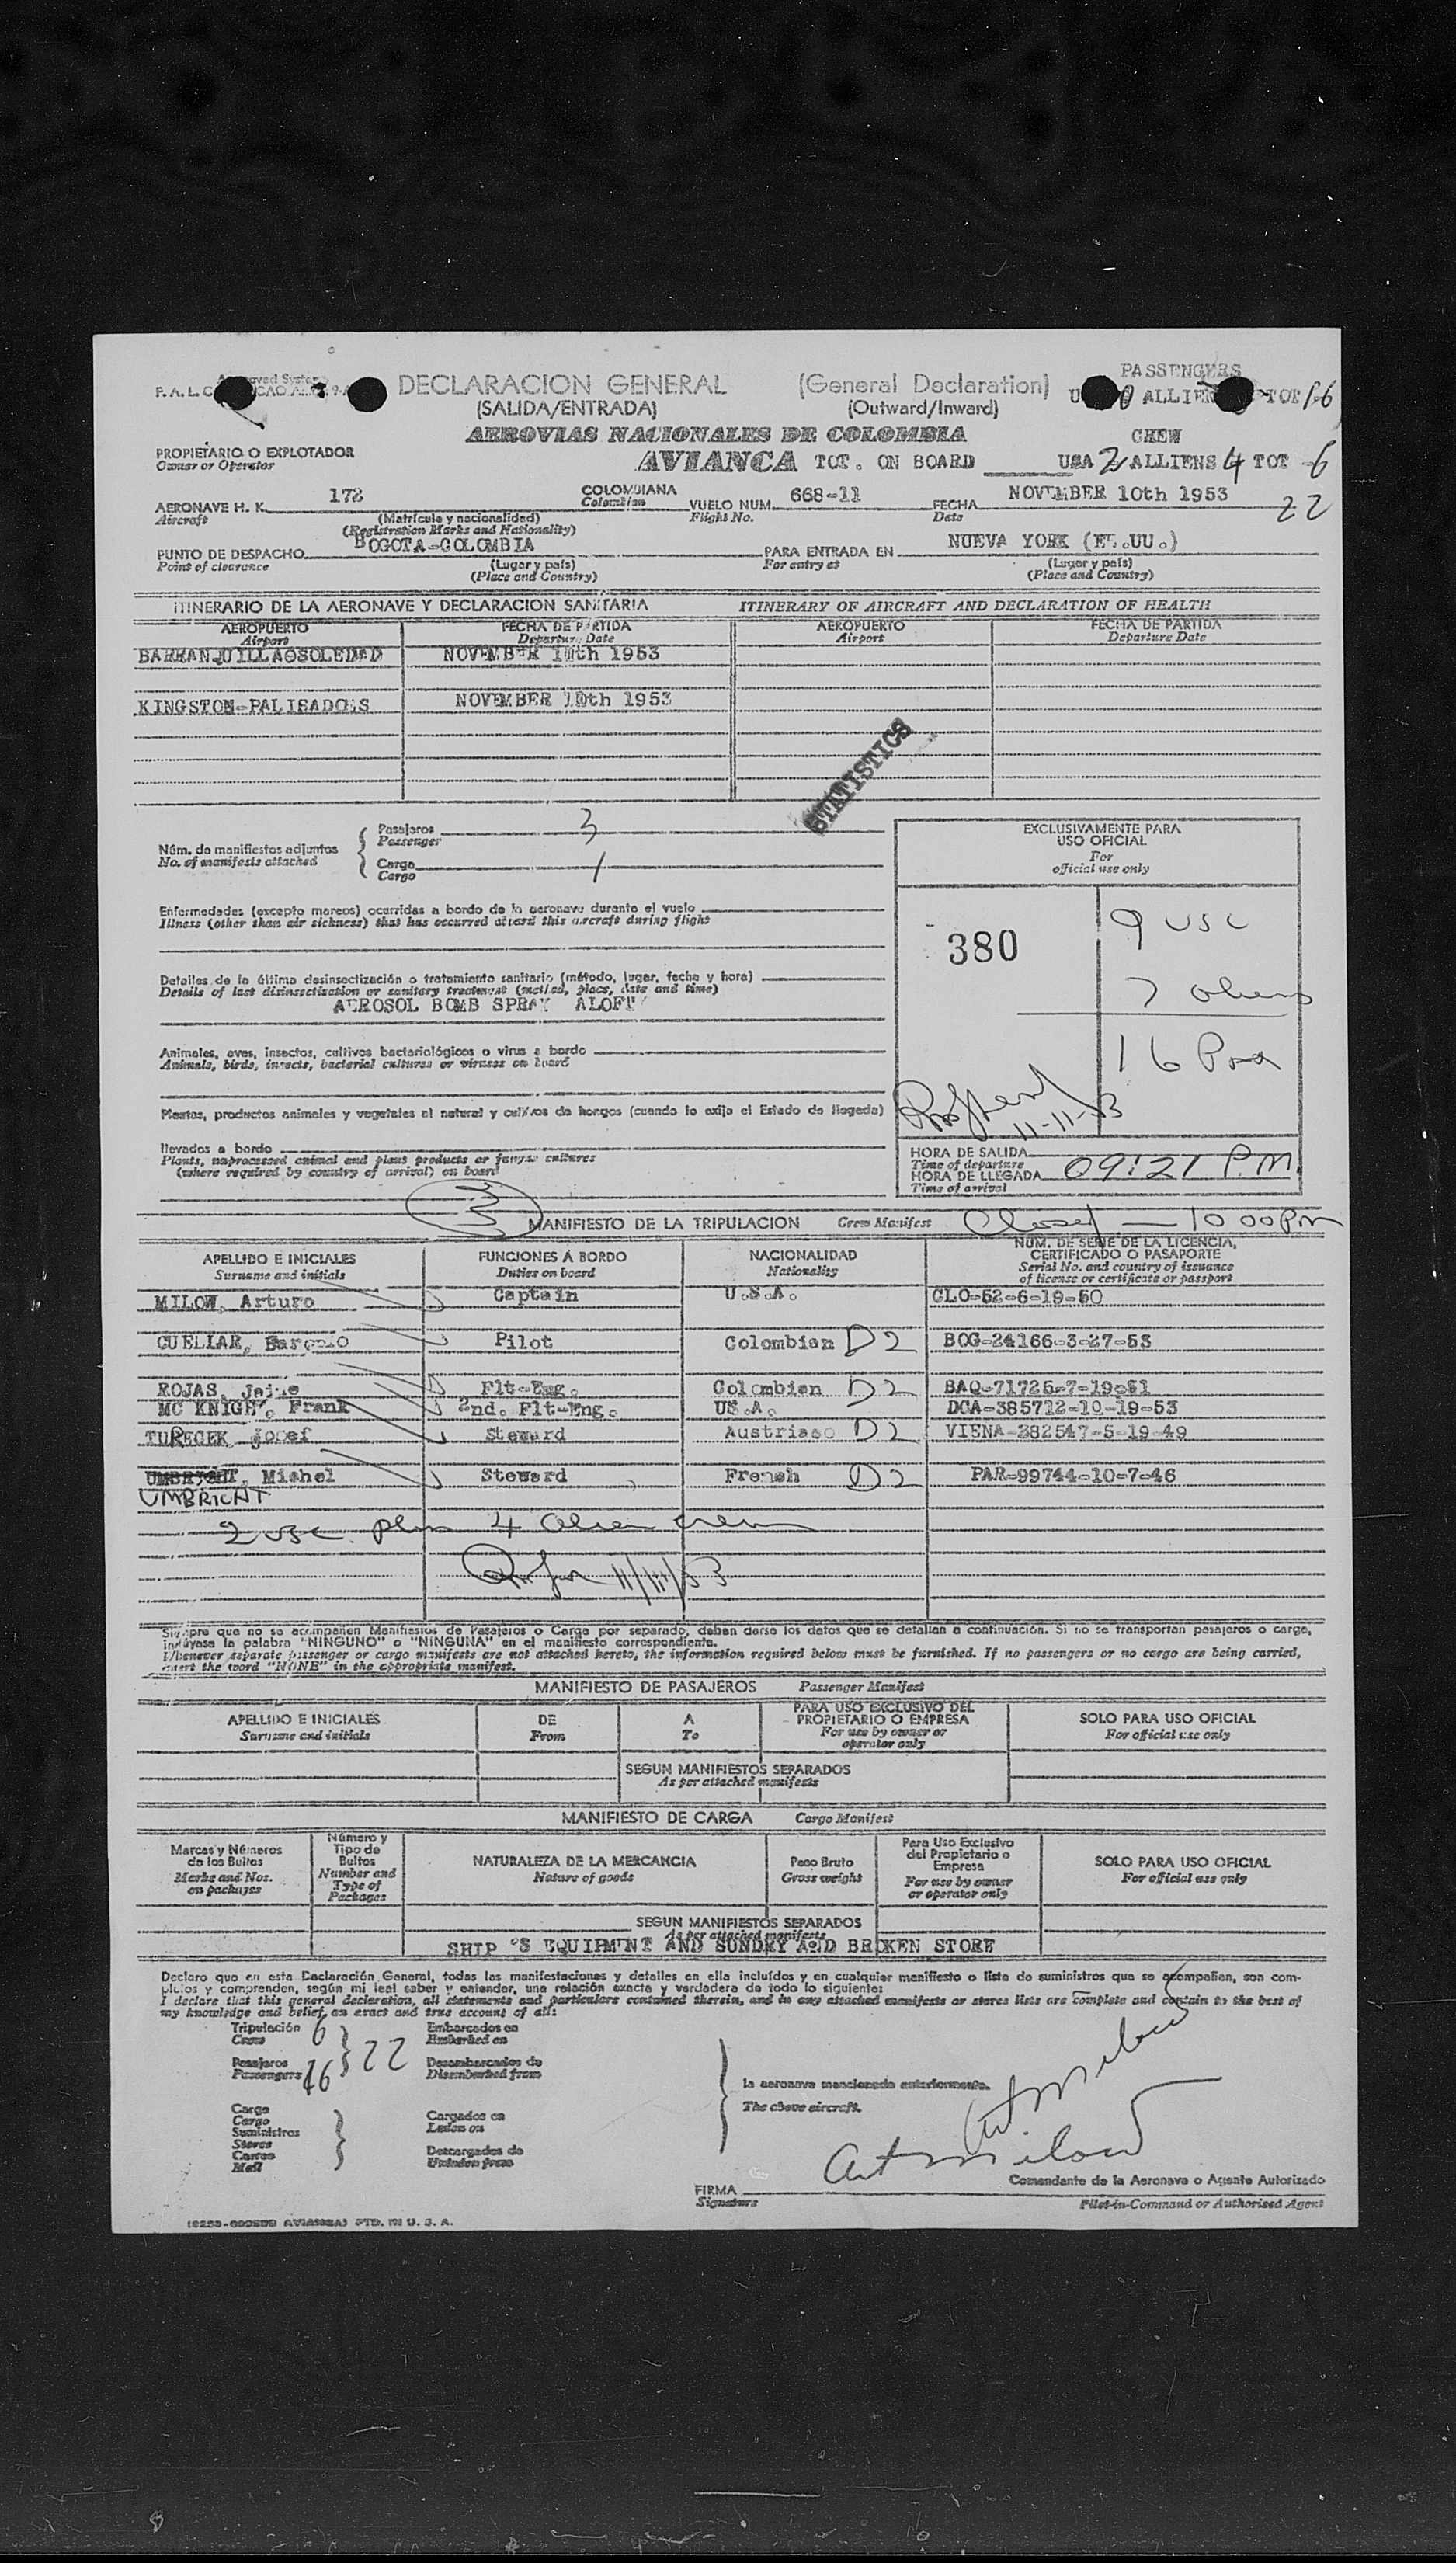 DECLARACION GENERAL (General Declaration)
(SALIDA/ENTRADA) (Outward/Inward)
PASSENGERS
ALLIEN TOT 16
AEROVIAS NACIONALES DE COLOMBIA
CREW
AVIANCA TOT. ON BOARD USA 2 ALLIENS 4 TOT 6
22
PROPIETARIO O EXPLOTADOR
Owner or Operator
AERONAVE H. K. 172 COLOMBIANA VUELO NUM. 668-11 FECHA NOVEMBER 10th 1953
Aircraft Colombian Flight No. Date
(Matrícula y nacionalidad)
(Registration Marks and Nationality)
PUNTO DE DESPACHO BOGOTA-COLOMBIA PARA ENTRADA EN NUEVA YORK (EE.UU.)
Point of clearance For entry at
(Lugar y país) (Lugar y país)
(Place and Country) (Place and Country)
ITINERARIO DE LA AERONAVE Y DECLARACION SANITARIA ITINERARY OF AIRCRAFT AND DECLARATION OF HEALTH
AEROPUERTO FECHA DE PARTIDA AEROPUERTO FECHA DE PARTIDA
Airport Departure Date Airport Departure Date
BARRANQUILLA-SOLEDAD NOVEMBER 10th 1953
KINGSTON-PALISADOES NOVEMBER 10th 1953
STATISTICS
Núm. de manifiestos adjuntos
No. of manifests attached
Pasajeros 3
Passenger
Carga 1
Cargo
EXCLUSIVAMENTE PARA
USO OFICIAL
For
official use only
380
9 USC
7 aliens
16 Pax
11-11-53
Enfermedades (excepto mareos) ocurridas a bordo de la aeronave durante el vuelo
Illness (other than air sickness) that has occurred aboard this aircraft during flight
Detalles de la última desinsectización o tratamiento sanitario (método, lugar, fecha y hora)
Details of last disinsectisation or sanitary treatment (method, place, date and time)
AEROSOL BOMB SPRAY ALOFT
Animales, aves, insectos, cultivos bacteriológicos o virus a bordo
Animals, birds, insects, bacterial cultures or viruses on board
Plantas, productos animales y vegetales al natural y cultivos de hongos (cuando lo exija el Estado de llegada)
llevados a bordo
Plants, unprocessed animal and plant products or fungus cultures
(where required by country of arrival) on board
HORA DE SALIDA
Time of departure
HORA DE LLEGADA 09:21 P.M.
Time of arrival
3
MANIFIESTO DE LA TRIPULACION Crew Manifest Closed — 10 00 PM
APELLIDO E INICIALES FUNCIONES A BORDO NACIONALIDAD NUM. DE SERIE DE LA LICENCIA,
CERTIFICADO O PASAPORTE
Surname and initials Duties on board Nationality Serial No. and country of issuance
of license or certificate or passport
MILOW, Arturo Captain U.S.A. CLO-52-6-19-50
CUELLAR, Pilot Colombian D2 BOG-24166-3-27-53
ROJAS, Jaime Flt-Eng. Colombian D2 BAQ-71725-7-19-51
MC KNIGHT, Frank 2nd. Flt-Eng. US.A. DCA-385712-10-19-53
TURECEK, Josef Steward D2 VIENA-382547-5-19-49
Mishel Steward French D2 PAR-99744-10-7-46
UMBRICHT
2 USC plus 4 alien crew
11/11/53
Siempre que no se acompañen Manifiestos de Pasajeros o Carga por separado, deban darse los datos que se detallan a continuación. Si no se transportan pasajeros o carga,
inclúyase la palabra "NINGUNO" o "NINGUNA" en el manifiesto correspondiente.
Whenever separate passenger or cargo manifests are not attached hereto, the information required below must be furnished. If no passengers or no cargo are being carried,
insert the word "NONE" in the appropriate manifest.
MANIFIESTO DE PASAJEROS Passenger Manifest
APELLIDO E INICIALES DE A PARA USO EXCLUSIVO DEL
PROPIETARIO O EMPRESA SOLO PARA USO OFICIAL
Surname and initials From To For use by owner or
operator only For official use only
SEGUN MANIFIESTOS SEPARADOS
As per attached manifests
MANIFIESTO DE CARGA Cargo Manifest
Marcas y Números
de los Bultos
Marks and Nos.
on packages
Número y
Tipo de
Bultos
Number and
Type of
Packages
NATURALEZA DE LA MERCANCIA
Nature of goods
Peso Bruto
Gross weight
Para Uso Exclusivo
del Propietario o
Empresa
For use by owner
or operator only
SOLO PARA USO OFICIAL
For official use only
SEGUN MANIFIESTOS SEPARADOS
As per attached manifests
SHIP 'S EQUIPMENT AND SUNDRY AND BROKEN STORE
Declaro que en esta Declaración General, todas las manifestaciones y detalles en ella incluídos y en cualquier manifiesto o lista de suministros que se acompañan, son com-
pletos y comprenden, según mi leal saber y entender, una relación exacta y verdadera de todo lo siguiente:
I declare that this general declaration, all statements and particulars contained therein, and in any attached manifests or stores lists are complete and contain to the best of
my knowledge and belief, an exact and true account of all:
Tripulación 6
Crew
Pasajeros 16
Passengers
22
Embarcados en
Embarked on
Desembarcados de
Disembarked from
Carga
Cargo
Suministros
Stores
Correo
Mail
Cargados en
Laden on
Descargados de
Unladen from
la aeronave mencionada anteriormente.
The above aircraft.
Art Milow
Art Milow
FIRMA
Signature
Comandante de la Aeronave o Agente Autorizado
Pilot-in-Command or Authorised Agent